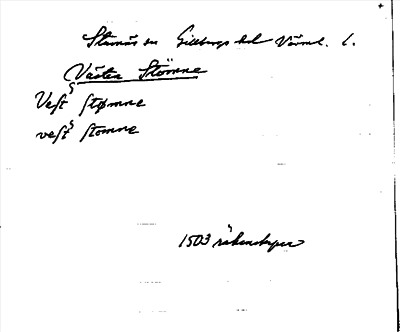 Stavnäs sn Gillbergs hd Värml. l.
Väster Stömne
Vest stømne
vest stomne
1503 räkenskaper